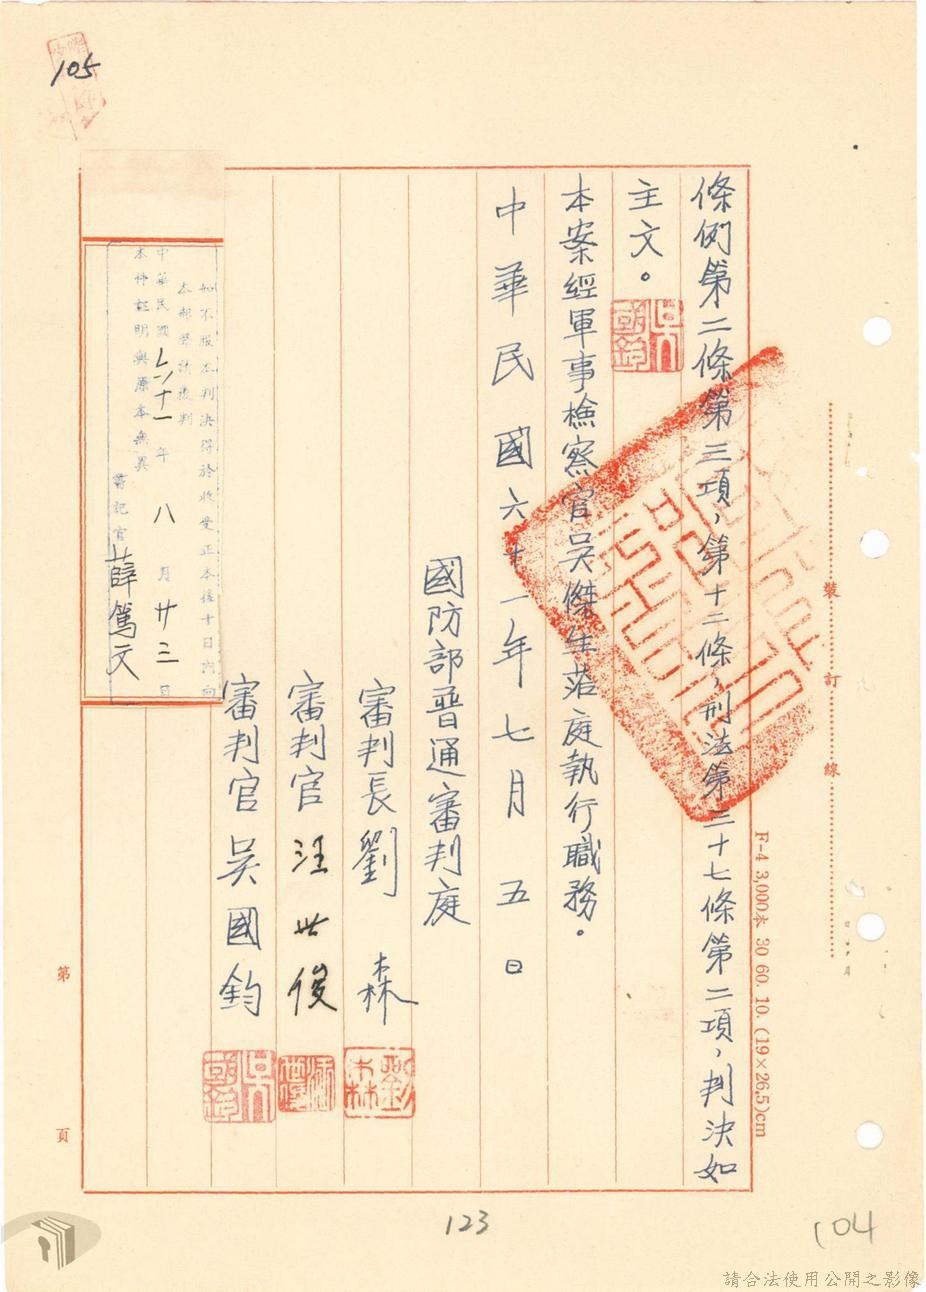 105
條例第二條第三項，第十二條，刑法第三十七條第二項，判決如
主文。
本案經軍事檢察官吳傑生蒞庭執行職務。
中華民國六十一年七月五日
國防部普通審判庭
審判長劉森
審判官汪世俊
審判官吳國鈞
如不服本判決得於收受正本後十日內向
本部聲請覆判
中華民國六十一年八月廿三日
本件証明與原本無異
書記官薛篤文
裝訂線
F-4 3,000本 30 60. 10. (19×26.5)cm
第 頁
123
104
請合法使用公開之影像